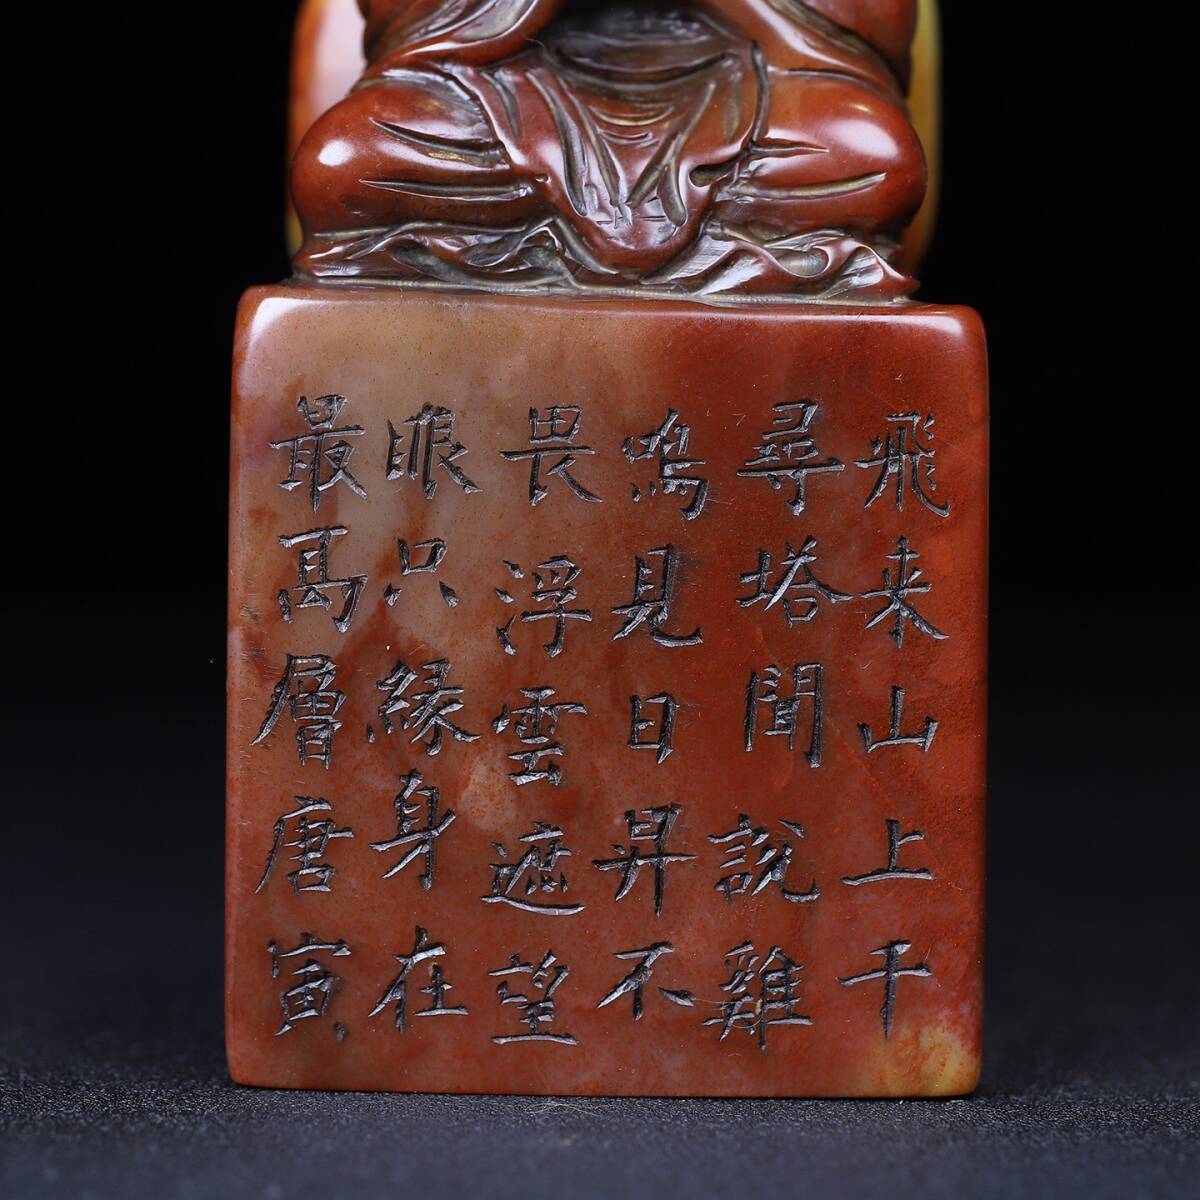 飛来山上千
尋塔聞說雞
鳴見日昇不
畏浮雲遮望
眼只緣身在
最高層唐寅